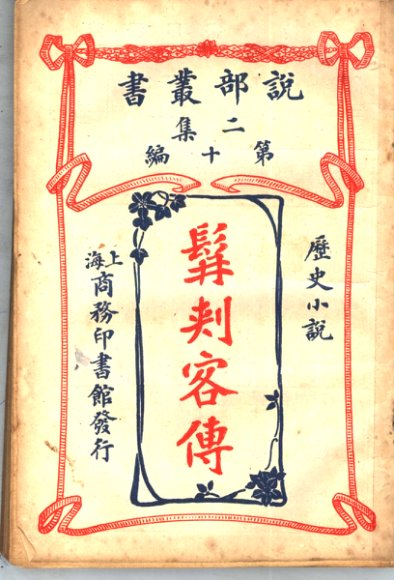 說部叢書
二集
第十編
歷史小說
髯刺客傳
上海商務印書館發行